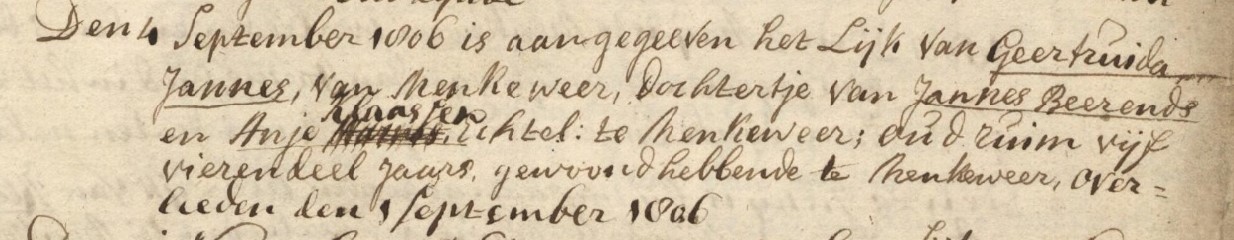 Den 4 September 1806 is aangegeeven het Lijk van Geertruida
Jannes, van Menkeweer, Dochtertje van Jannes Beerends
Klaassen
en Anje Echtel: te Menkeweer; oud ruim vijf
vierendeel Jaars, gewoond hebbende te Menkeweer, over=
lieden den 1 September 1806